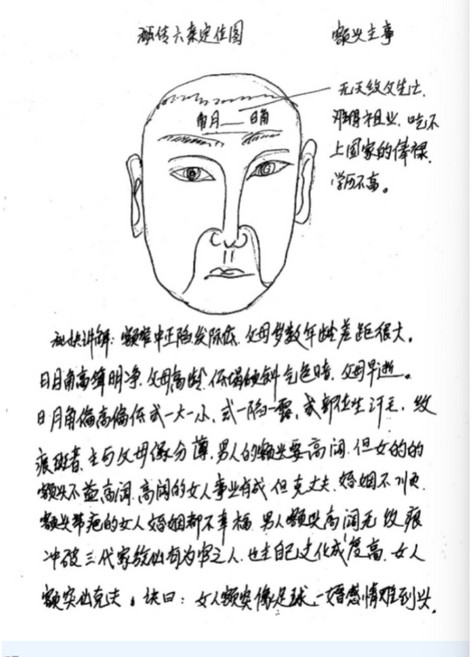 秘传六亲定位图
额头主事
无天纹父先亡.
难得祖业.吃不
上国家的俸禄.
学历不高。
月 一 日角
秘诀讲解:额窄中正陷发际低.父母岁数年龄差距很大。
日月角高耸明净.父母高龄.低塌缺斜气色暗.父母早逝。
日月角偏高偏低或一大一小.或一陷一露.或部位生汗毛.纹
痕斑者.主与父母缘分薄.男人的额头要高阔.但女的的
额头不益高阔.高阔的女人事业有成.但克丈夫.婚姻不顺.
额头带疤的女人婚姻都不幸福.男人额头高阔无纹痕
冲破三代家族必有为官之人.也主自己文化程度高.女人
额突必克夫。诀曰:女人额突像足球.一婚感情难到头.